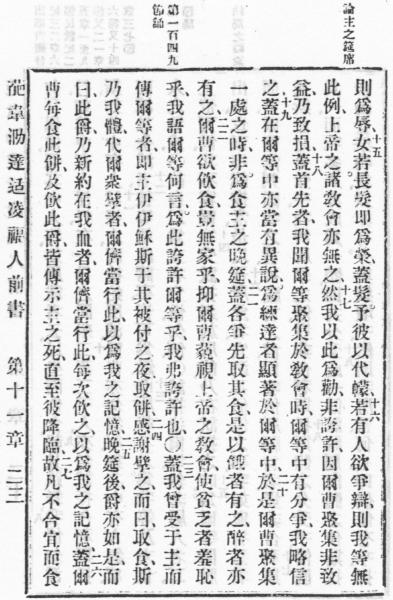 論主之筵席
第一百四九
節誦
十五
十六
則爲辱女若長髮即爲榮蓋髮予彼以代幪若有人欲爭辯則我等無
十七
此例上帝之諸敎會亦無之然我以此爲勸非誇許因爾曹聚集非致
十八
益乃致損蓋首先者我聞爾等聚集於敎會時爾等中有分爭我略信
十九
二十
之蓋在爾等中亦當有異說爲練達者顯著於爾等中於是爾曹聚集
二一
一處之時非爲食主之晚筵蓋各爭先取其食是以餓者有之醉者亦
二二
有之爾曹欲飲食豈無家乎抑爾曹藐視上帝之敎會使貧乏者羞恥
二三
乎我語爾等何言爲此誇許爾等乎我弗誇許也○蓋我曾受于主而
二四
傳爾等者即主伊伊穌斯于其被付之夜取餅感謝擘之而曰取食斯
二五
乃我體代爾衆擘者爾儕當行此以爲我之記憶晚筵後爵亦如是而
二六
曰此爵乃新約在我血者爾儕當行此每次飲之以爲我之記憶蓋爾
二七
曹每食此餅及飲此爵皆傳示主之死直至彼降臨故凡不合宜而食
達适凌福人前書 第十一章 二三